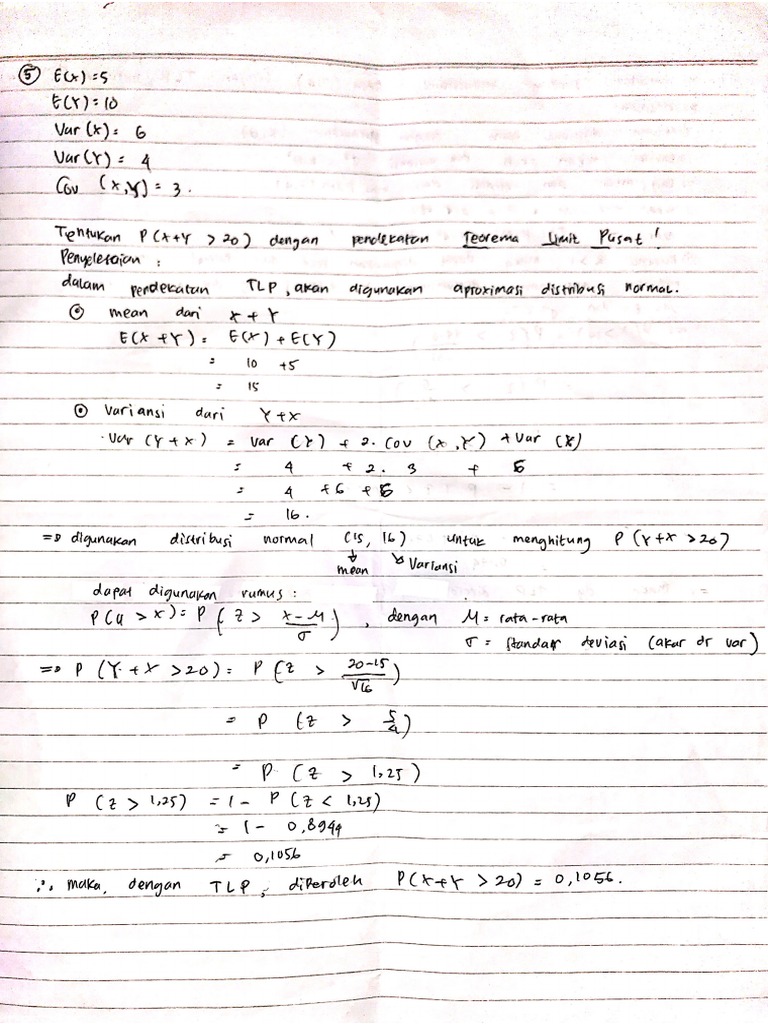 ⑤ E(X) = 5
E(Y) = 10
Var(X) = 6
Var(Y) = 4
Cov (X,Y) = 3.
Tentukan P(X+Y > 20) dengan pendekatan Teorema Limit Pusat !
Penyelesaian :
dalam pendekatan TLP, akan digunakan aproximasi distribusi normal.
⊙ mean dari X + Y
E(X + Y) = E(X) + E(Y)
= 10 + 5
= 15
⊙ Variansi dari Y+X
Var (Y + X) = Var (Y) + 2. Cov (X,Y) + Var (X)
= 4 + 2. 3 + 6
= 4 + 6 + 6
= 16.
⇒ digunakan distribusi normal (15, 16) untuk menghitung P(Y+X > 20)
↓ mean ↘ Variansi
dapat digunakan rumus :
P(u > x) = P (z > x-μ/σ) , dengan μ = rata-rata
σ = standar deviasi (akar dr var)
⇒ P (Y + X > 20) = P (z > 20-15/√16)
= P (z > 5/4)
= P (z > 1,25)
P (z > 1,25) = 1 - P (z < 1,25)
= 1 - 0,8944
= 0,1056
∴ maka, dengan TLP, diperoleh P(X+Y > 20) = 0,1056.